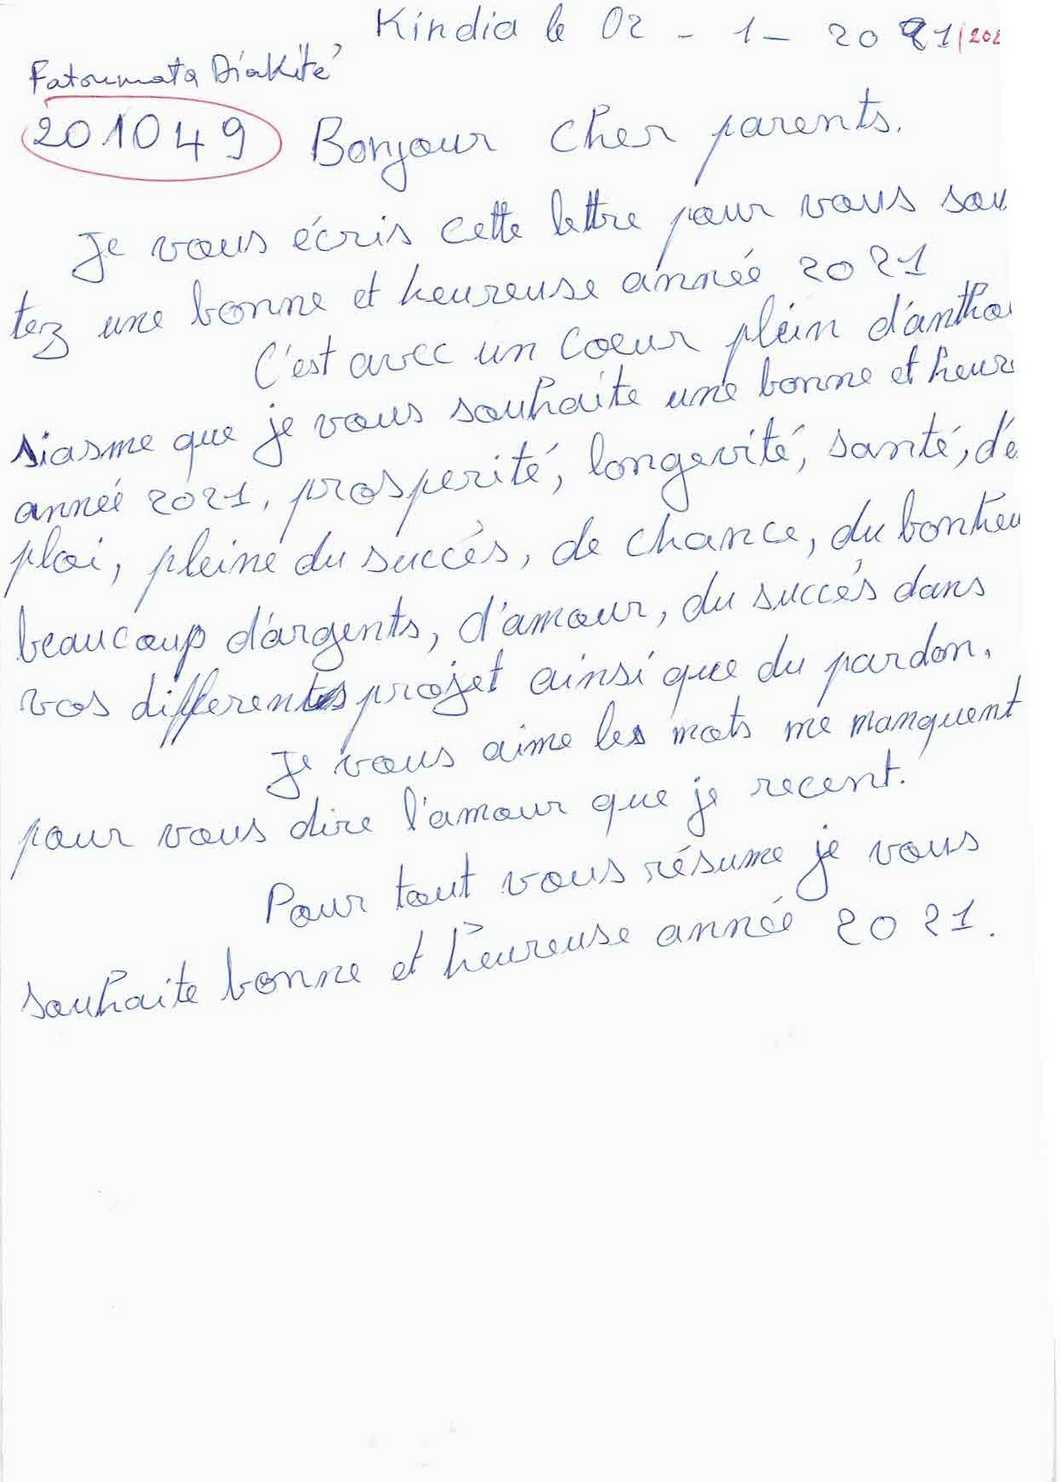 Kindia le 02 - 1 - 2021 /202
Fatoumata Diakité
201049
Bonjour cher parents.
Je vous écris cette lettre pour vous sou
tez une bonne et heureuse année 2021
C'est avec un coeur plein d'antho
siasme que je vous souhaite une bonne et heur
année 2021, prosperité, longevité, santé, d'é
ploi, pleine du succès, de chance, du bonheu
beaucoup d'argents, d'amour, du succès dans
vos differents projet ainsi que du pardon.
Je vous aime les mots me manquent
pour vous dire l'amour que je recent.
Pour tout vous résume je vous
souhaite bonne et heureuse année 2021.